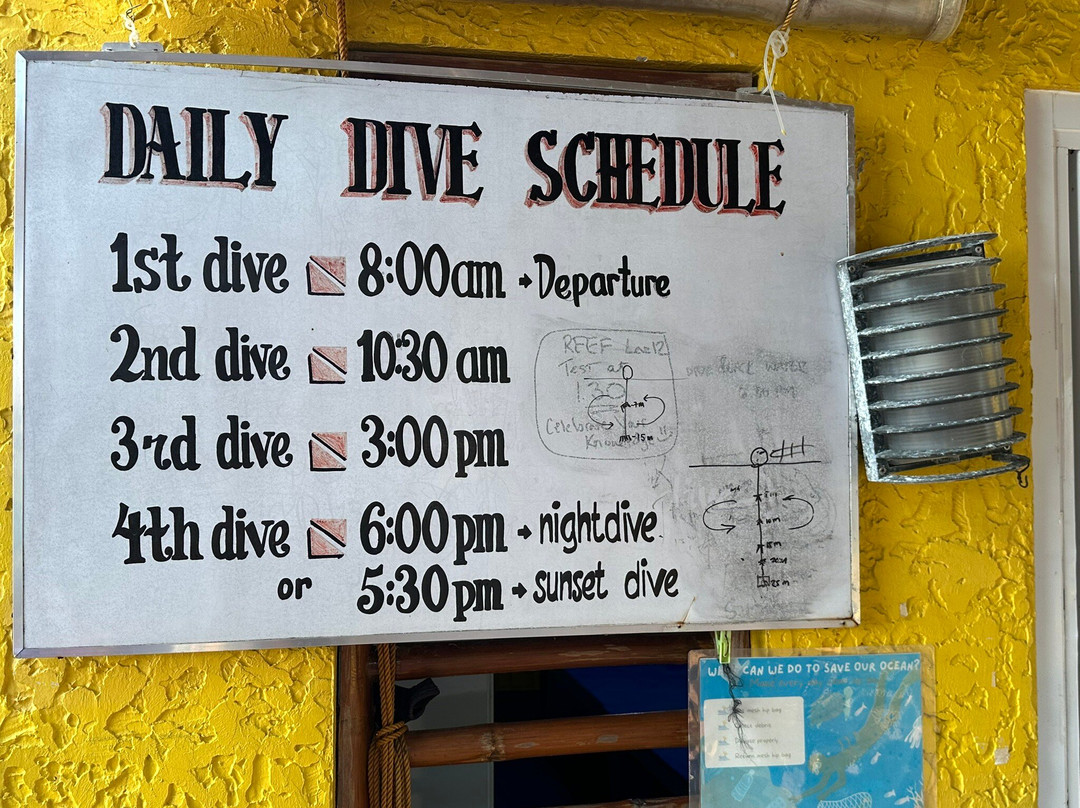 DAILY DIVE SCHEDULE
1st dive 8:00am → Departure
2nd dive 10:30 am
3rd dive 3:00pm
4th dive 6:00pm → nightdive
or 5:30pm → sunset dive
REEF
Test at
1:30
Celebrate
Knowledge!!
WATER
10m
25m
CAN WE DO TO SAVE OUR OCEAN?